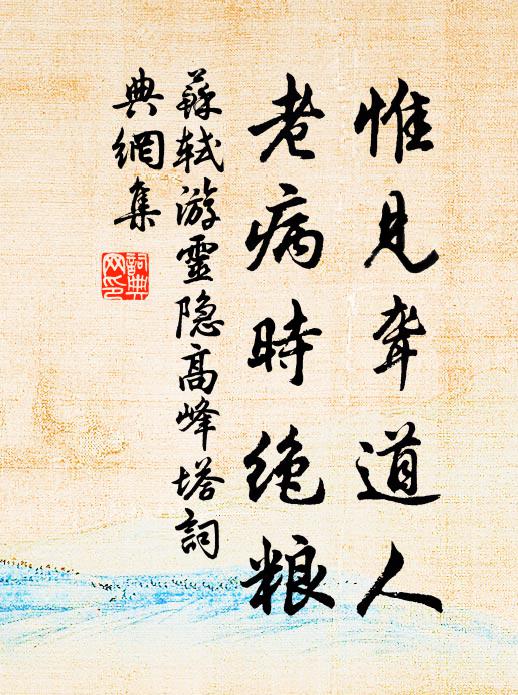 惟見聾道人
老病時绝粮
蘇軾游靈隐高峰塔詞
典網集
詞典
网印